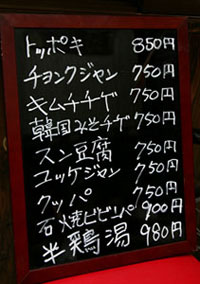 トッポキ 850円
チョンクジャン 750円
キムチチゲ 750円
韓国みそチゲ 750円
スン豆腐 750円
ユッケジャン 750円
クッパ 750円
石焼ビビンバ 900円
半鶏湯 980円